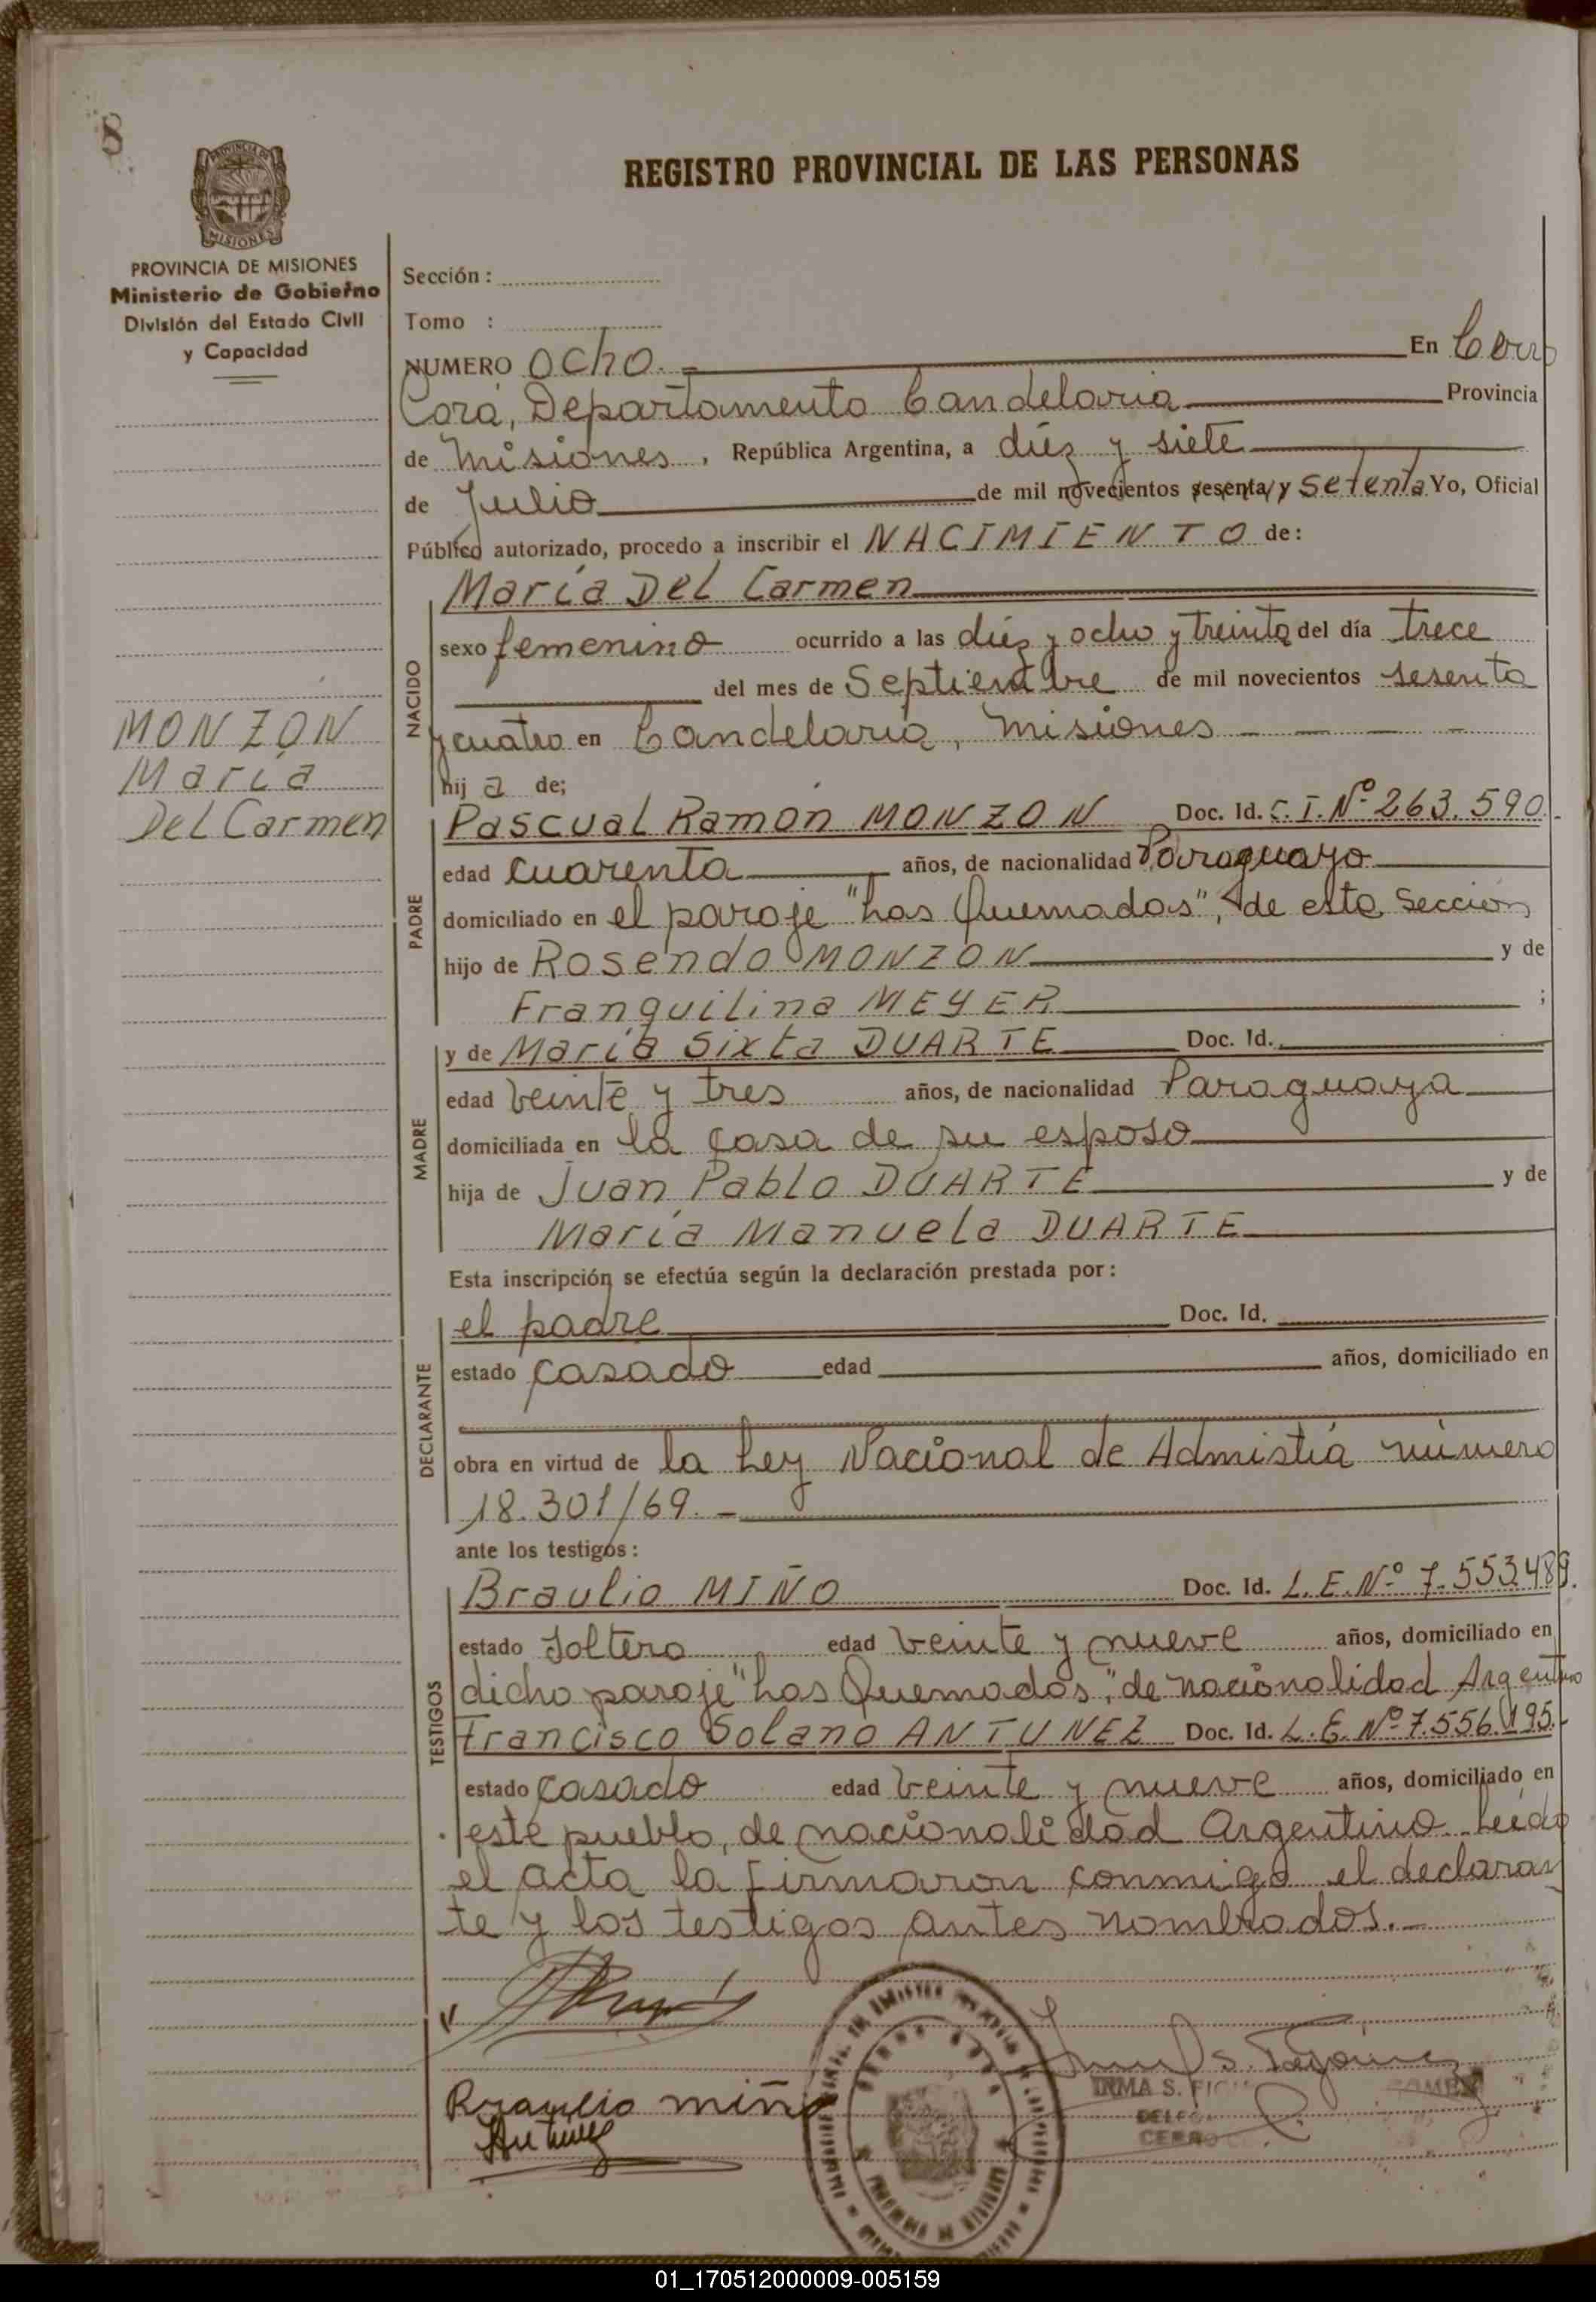 8
REGISTRO PROVINCIAL DE LAS PERSONAS
PROVINCIA DE MISIONES
Ministerio de Gobierno
División del Estado Civil
y Capacidad
Sección :
Tomo :
NUMERO ocho.- En Cerro
Corá, Departamento Candelaria Provincia
de Misiones, República Argentina, a diéz y siete
de Julio de mil novecientos sesenta y setenta Yo, Oficial
Público autorizado, procedo a inscribir el NACIMIENTO de:
María Del Carmen
NACIDO
sexo femenino ocurrido a las diéz y ocho y treinta del día trece
del mes de Septiembre de mil novecientos sesenta
y cuatro en Candelaria, Misiones
hij a de;
MONZON
María
Del Carmen
PADRE
Pascual Ramón MONZON Doc. Id. C.I. Nº 263.590.-
edad cuarenta años, de nacionalidad Paraguayo
domiciliado en el paraje "Las Quemadas", de esta Sección
hijo de Rosendo MONZON y de
Franquilina MEYER ;
MADRE
y de María Sixta DUARTE Doc. Id.
edad veinte y tres años, de nacionalidad Paraguaya
domiciliada en la casa de su esposo
hija de Juan Pablo DUARTE y de
María Manuela DUARTE
Esta inscripción se efectúa según la declaración prestada por:
DECLARANTE
el padre Doc. Id.
estado casado edad años, domiciliado en
obra en virtud de la Ley Nacional de Admistía número
18.301/69.-
ante los testigos:
TESTIGOS
Braulio MIÑO Doc. Id. L.E. Nº 7.553.489.
estado Soltero edad veinte y nueve años, domiciliado en
dicho paraje "Las Quemadas", de nacionalidad Argentino
Francisco Solano ANTUNEZ Doc. Id. L.E. Nº 7.556.195.-
estado casado edad veinte y nueve años, domiciliado en
este pueblo, de nacionalidad Argentino. Leído
el acta la firmaron conmigo el declaran
te y los testigos antes nombrados.-
Braulio miño
Antunez
IRMA S.
CERRO
01_170512000009-005159